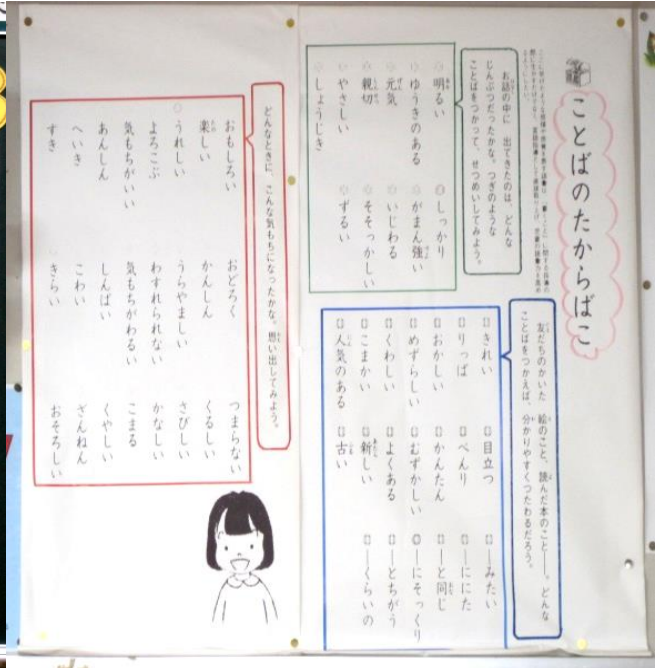 ことばのたからばこ
お話の中に 出てきたのは、どんな
じんぶつだったかな。つぎのような
ことばをつかって、せつめいしてみよう。
明るい しっかり
ゆうきのある がまん強い
元気 いじわる
親切 そそっかしい
やさしい ずるい
しょうじき
友だちのかいた 絵のこと、読んだ本のこと――。どんな
ことばをつかえば、分かりやすくつたわるだろう。
きれい 目立つ ―みたい
りっぱ べんり ―ににた
おかしい かんたん ―と同じ
めずらしい むずかしい ―にそっくり
くわしい よくある ―とちがう
こまかい 新しい ―くらいの
人気のある 古い
どんなときに、こんな気もちになったかな。思い出してみよう。
おもしろい おどろく つまらない
楽しい かんしん くるしい
うれしい うらやましい さびしい
よろこぶ わすれられない かなしい
気もちがいい 気もちがわるい こまる
あんしん しんぱい くやしい
へいき こわい ざんねん
すき きらい おそろしい